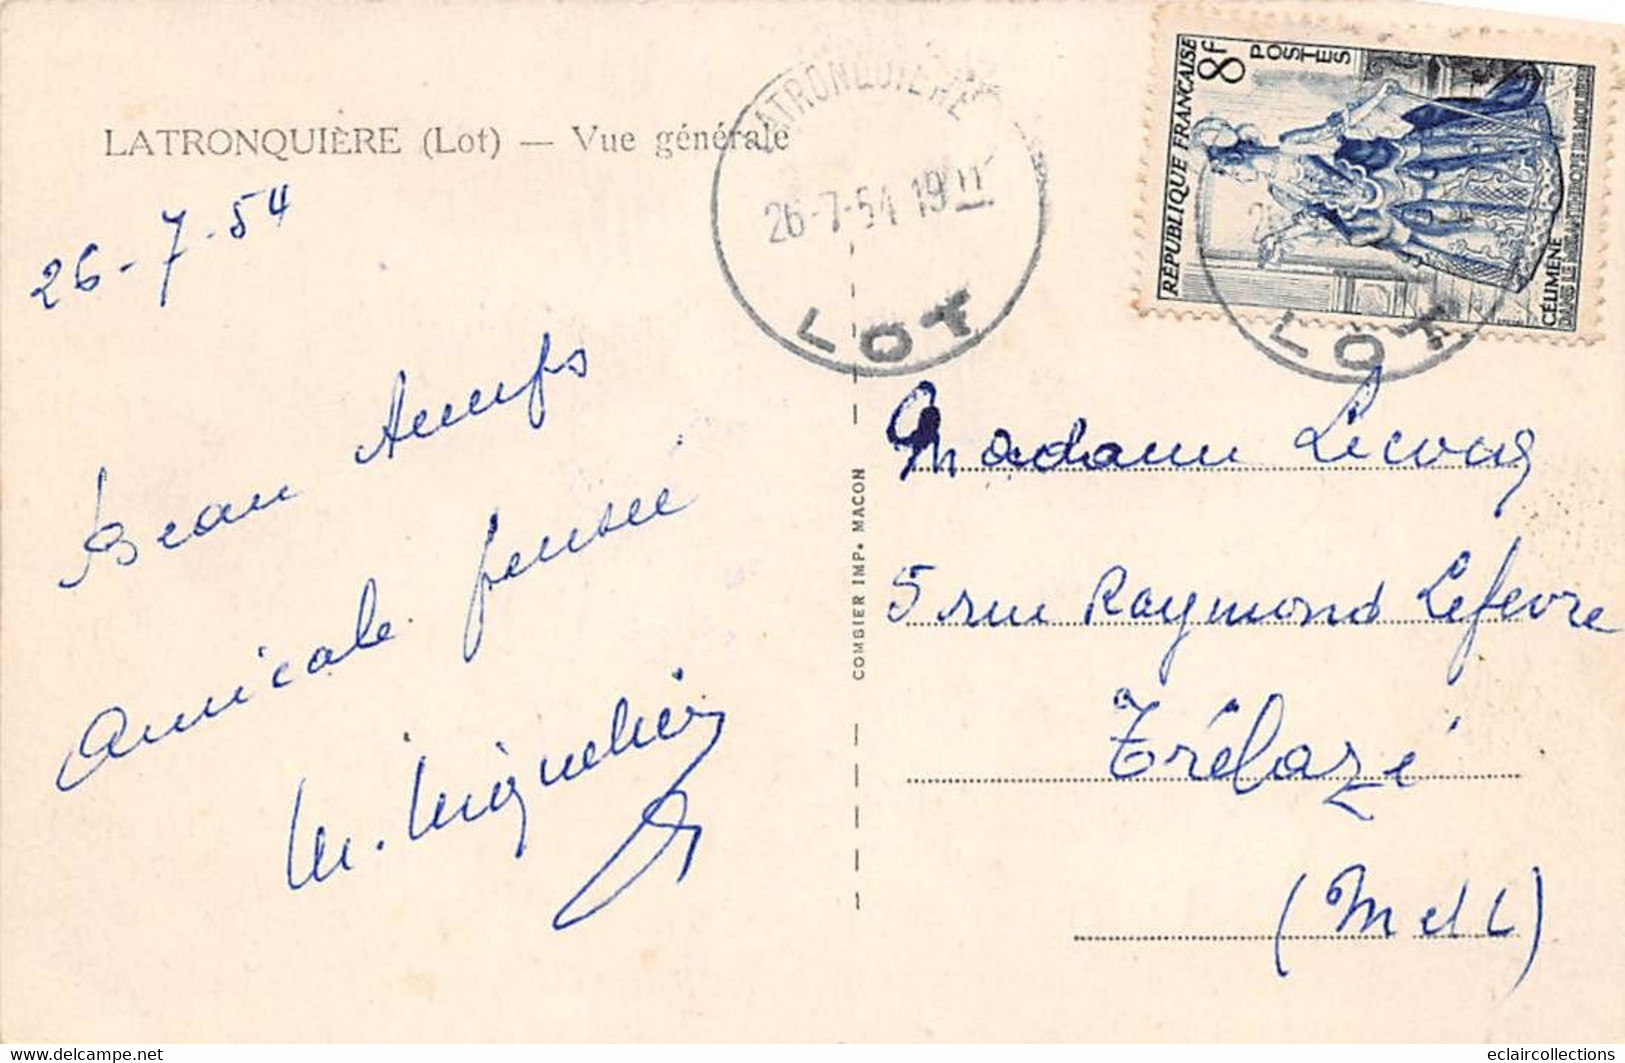 LATRONQUIÈRE (Lot) — Vue générale
26-7-54
Beau temps
Amicale pensée
LATRONQUIERE
26-7-54 19
LOT
COMBIER IMP. MACON
RÉPUBLIQUE FRANÇAISE
8F
POSTES
CÉLIMÈNE
DANS LE MISANTHROPE DE MOLIÈRE
LOT
Madame Lecoq
5 rue Raymond Lefevre
Trélazé
(M et L)
www.delcampe.net
eclaircollections